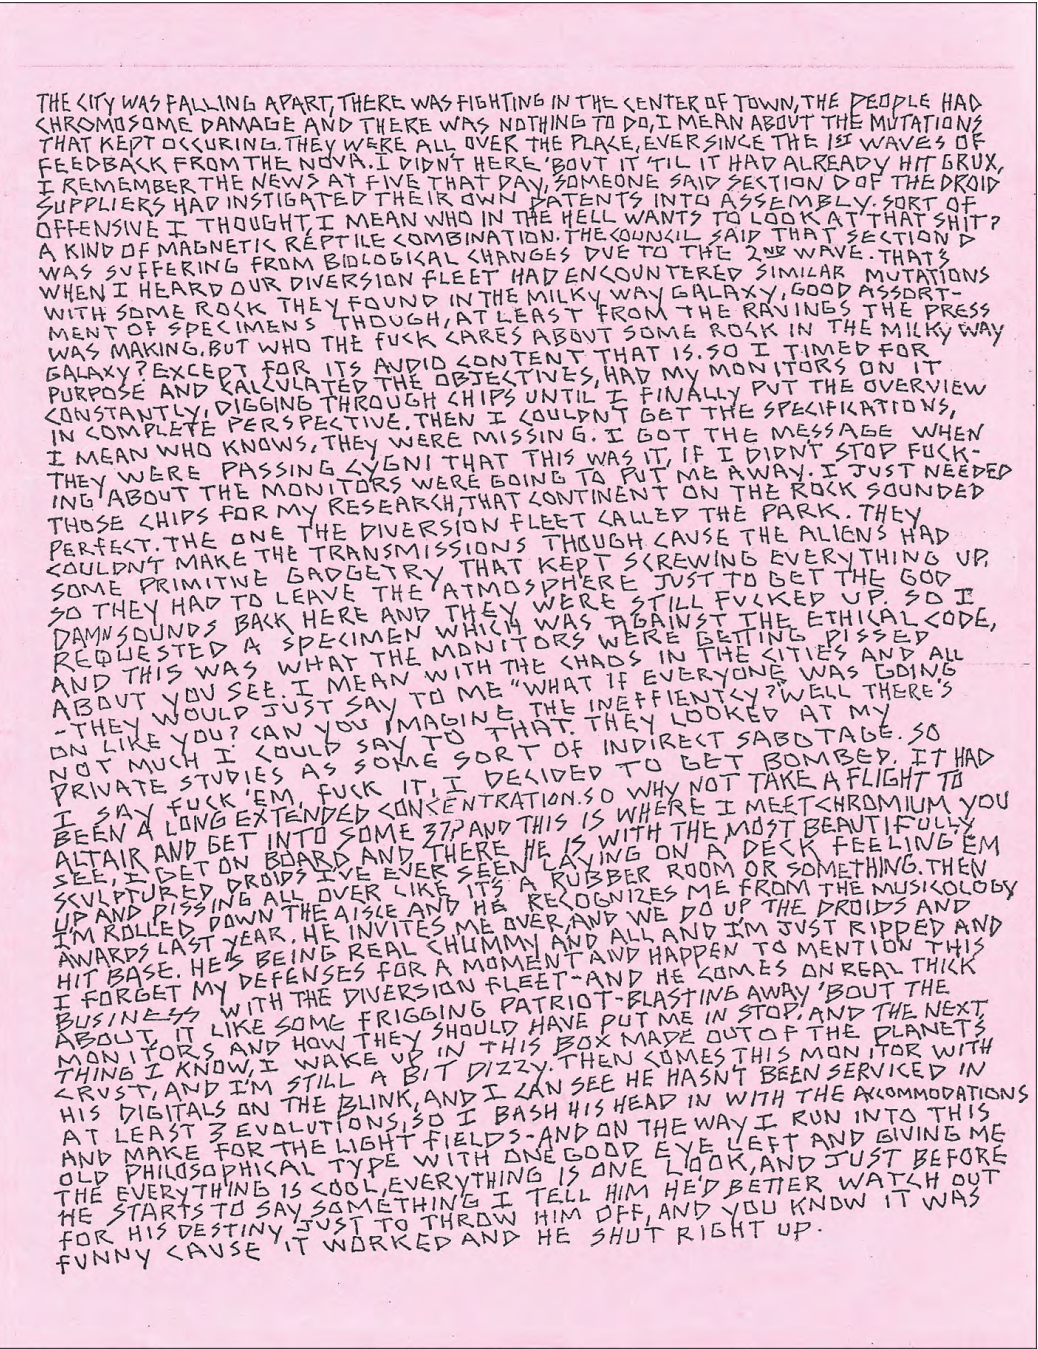 THE CITY WAS FALLING APART, THERE WAS FIGHTING IN THE CENTER OF TOWN, THE PEOPLE HAD
CHROMOSOME DAMAGE AND THERE WAS NOTHING TO DO, I MEAN ABOUT THE MUTATIONS
THAT KEPT OCCURING. THEY WERE ALL OVER THE PLACE, EVER SINCE THE 1ST WAVES OF
FEEDBACK FROM THE NOVA. I DIDN'T HERE 'BOUT IT 'TIL IT HAD ALREADY HIT GRUX,
I REMEMBER THE NEWS AT FIVE THAT DAY, SOMEONE SAID SECTION D OF THE DROID
SUPPLIERS HAD INSTIGATED THEIR OWN PATENTS INTO ASSEMBLY. SORT OF
OFFENSIVE I THOUGHT, I MEAN WHO IN THE HELL WANTS TO LOOK AT THAT SHIT?
A KIND OF MAGNETIC REPTILE COMBINATION. THE COUNCIL SAID THAT SECTION D
WAS SUFFERING FROM BIOLOGICAL CHANGES DUE TO THE 2ND WAVE. THATS
WHEN I HEARD OUR DIVERSION FLEET HAD ENCOUNTERED SIMILAR MUTATIONS
WITH SOME ROCK THEY FOUND IN THE MILKY WAY GALAXY, GOOD ASSORT-
MENT OF SPECIMENS THOUGH, AT LEAST FROM THE RAVINGS THE PRESS
WAS MAKING. BUT WHO THE FUCK CARES ABOUT SOME ROCK IN THE MILKY WAY
GALAXY? EXCEPT FOR ITS AUDIO CONTENT THAT IS. SO I TIMED FOR
PURPOSE AND CALCULATED THE OBJECTIVES, HAD MY MONITORS ON IT
CONSTANTLY, DIGGING THROUGH CHIPS UNTIL I FINALLY PUT THE OVERVIEW
IN COMPLETE PERSPECTIVE. THEN I COULDN'T GET THE SPECIFICATIONS,
I MEAN WHO KNOWS, THEY WERE MISSING. I GOT THE MESSAGE WHEN
THEY WERE PASSING CYGNI THAT THIS WAS IT, IF I DIDN'T STOP FUCK-
ING ABOUT THE MONITORS WERE GOING TO PUT ME AWAY. I JUST NEEDED
THOSE CHIPS FOR MY RESEARCH, THAT CONTINENT ON THE ROCK SOUNDED
PERFECT. THE ONE THE DIVERSION FLEET CALLED THE PARK. THEY
COULDN'T MAKE THE TRANSMISSIONS THOUGH CAUSE THE ALIENS HAD
SOME PRIMITIVE GADGETRY THAT KEPT SCREWING EVERYTHING UP,
SO THEY HAD TO LEAVE THE ATMOSPHERE JUST TO GET THE GOD
DAMN SOUNDS BACK HERE AND THEY WERE STILL FUCKED UP. SO I
REQUESTED A SPECIMEN WHICH WAS AGAINST THE ETHICAL CODE,
AND THIS WAS WHAT THE MONITORS WERE GETTING PISSED
ABOUT YOU SEE. I MEAN WITH THE CHAOS IN THE CITIES AND ALL
-THEY WOULD JUST SAY TO ME "WHAT IF EVERYONE WAS GOING
ON LIKE YOU? CAN YOU IMAGINE THE INEFFIENTCY?" WELL THERE'S
NOT MUCH I COULD SAY TO THAT. THEY LOOKED AT MY
PRIVATE STUDIES AS SOME SORT OF INDIRECT SABOTAGE. SO
I SAY FUCK 'EM, FUCK IT, I DECIDED TO GET BOMBED. IT HAD
BEEN A LONG EXTENDED CONCENTRATION. SO WHY NOT TAKE A FLIGHT TO
ALTAIR AND GET INTO SOME 37? AND THIS IS WHERE I MEET CHROMIUM YOU
SEE, I GET ON BOARD AND THERE HE IS WITH THE MOST BEAUTIFULLY
SCULPTURED DROIDS I'VE EVER SEEN LAYING ON A DECK FEELING 'EM
UP AND PISSING ALL OVER LIKE ITS A RUBBER ROOM OR SOMETHING. THEN
I'M ROLLED DOWN THE AISLE AND HE RECOGNIZES ME FROM THE MUSICOLOGY
AWARDS LAST YEAR. HE INVITES ME OVER, AND WE DO UP THE DROIDS AND
HIT BASE. HE'S BEING REAL CHUMMY AND ALL AND I'M JUST RIPPED AND
I FORGET MY DEFENSES FOR A MOMENT AND HAPPEN TO MENTION THIS
BUSINESS WITH THE DIVERSION FLEET-AND HE COMES ON REAL THICK
ABOUT IT LIKE SOME FRIGGING PATRIOT-BLASTING AWAY 'BOUT THE
MONITORS AND HOW THEY SHOULD HAVE PUT ME IN STOP. AND THE NEXT
THING I KNOW, I WAKE UP IN THIS BOX MADE OUT OF THE PLANETS
CRUST, AND I'M STILL A BIT DIZZY. THEN COMES THIS MONITOR WITH
HIS DIGITALS ON THE BLINK, AND I CAN SEE HE HASN'T BEEN SERVICED IN
AT LEAST 3 EVOLUTIONS, SO I BASH HIS HEAD IN WITH THE ACCOMMODATIONS
AND MAKE FOR THE LIGHT FIELDS-AND ON THE WAY I RUN INTO THIS
OLD PHILOSOPHICAL TYPE WITH ONE GOOD EYE LEFT AND GIVING ME
THE EVERYTHING IS COOL, EVERYTHING IS ONE LOOK, AND JUST BEFORE
HE STARTS TO SAY SOMETHING I TELL HIM HE'D BETTER WATCH OUT
FOR HIS DESTINY JUST TO THROW HIM OFF, AND YOU KNOW IT WAS
FUNNY CAUSE IT WORKED AND HE SHUT RIGHT UP.